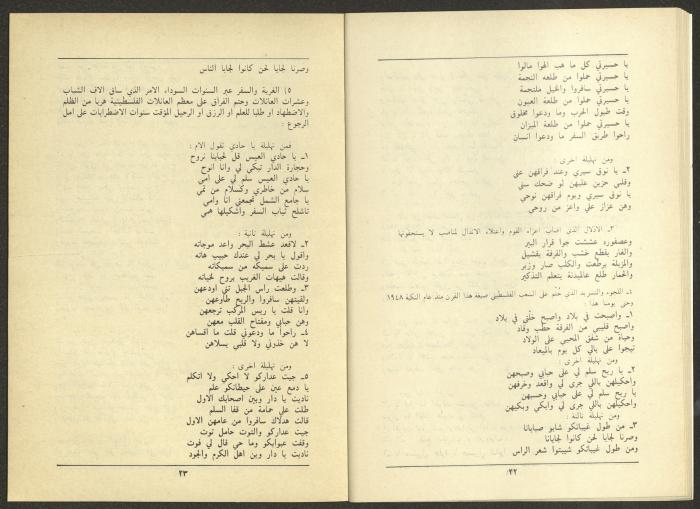 يا حسيرتي كل ما هب الهوا مالوا
يا حسيرتي حملوا من طلعة النجمة
يا حسيرتي سافروا والخيل ملتجمة
يا حسيرتي حملوا من طلعة العيون
وقت طبول الحرب وما ودعوا مخلوق
يا حسيرتي حملوا من طلعة الميزان
راحوا طريق السفر ما ودعوا انسان
ومن تهليلة اخرى :
٢ـ يا نوق سيري وعند فراقهن عني
وقلبي حزين عليهن لو ضحك سني
يا نوق سيري ويوم فراقهن نوحي
وهن عزاز علي واعز من روحي
٣ـ الاذلال الذي اصاب اعزاء القوم واعتلاء الانذال لمناصب لا يستحقونها
وعصفوره عششت جوا قرار البير
والفار بقطع خشب والقرقة بقشبل
والمزبلة برطعت والكلب صار وزير
والحمار طلع عالمدنة بتعلم التذكير
٤ـ اللجوء والتشريد الذي ختم على الشعب الفلسطيني صبغة هذا القرن منذ عام النكبة ١٩٤٨
وحتى يومنا هذا :
١ـ واصبحت في بلاد واصبح خلتي في بلاد
واصبح قليبي من الفرقة حطب وقاد
وحياة من شفق المحبي على الاولاد
تيجوا على بالي كل يوم بالميعاد
ومن تهليلة اخرى :
٢ـ يا ريح سلم لي على حبابي وصبحهن
واحكيلهن باللي جرى لي واقعد وخرفهن
يا ريح سلم لي على حبابي وحسبهن
واحكيلهن باللي جرى لي وابكي وبكيهن
ومن تهليلة ثالثة :
٣ـ من طول غيباتكو شابو صبايانا
وصرنا لجايا لحن كانوا لجايانا
ومن طول غيباتكو شيبتوا شعر الراس
٢٢
وصرنا لجايا لحن كانوا لجايا الناس
٥) الغربة والسفر عبر السنوات السوداء الامر الذي ساق الاف الشباب
وعشرات العائلات وحتم الفراق على معظم العائلات الفلسطينية هربا من الظلم
والاضطهاد او طلبا للعلم او الرزق او الرحيل المؤقت سنوات الاضطرابات على امل
الرجوع :
فمن تهليلة يا حادي تقول الام :
١ـ يا حادي العيس قل لحبابنا نروح
وحجارة الدار تبكي لي وانا انوح
يا حادي العيس سلم لي على امي
سلام من خاطري وكسلام من تمي
يا جامع الشمل تجمعني انا وامي
تاشلح ثياب السفر واشكيلها همي
ومن تهليلة ثانية :
٢ـ لاقعد عشط البحر واعد موجاته
واقول يا بحر لي عندك حبيب هاته
ردت علي سميكه من سميكاته
وقالت هيهات الغريب يروح لخياته
٣ـ وطلعت راس الجبل تني اودعهن
ولقيتهن سافروا والريح طاوعهن
وانا قلت يا ريس المركب ترجعهن
وهن حبابي ومفتاح القلب معهن
٤ـ راحوا ما ودعوني قلت ما اقساهن
لا هن خذوني ولا قلبي يسلاهن
ومن تهليلة اخرى :
٥ـ جيت عداركو لا احكي ولا اتكلم
يا دمع عيني على حيطانكو علم
ناديت يا دار وين اصحابك الاول
طلت علي حمامة من قفا السلم
قالت هذلاك سافروا من عامهن الاول
جيت عداركو والتوت حامل توت
وقفت عبوابكو وما حي قال لي فوت
ناديت يا دار وين اهل الكرم والجود
٢٣